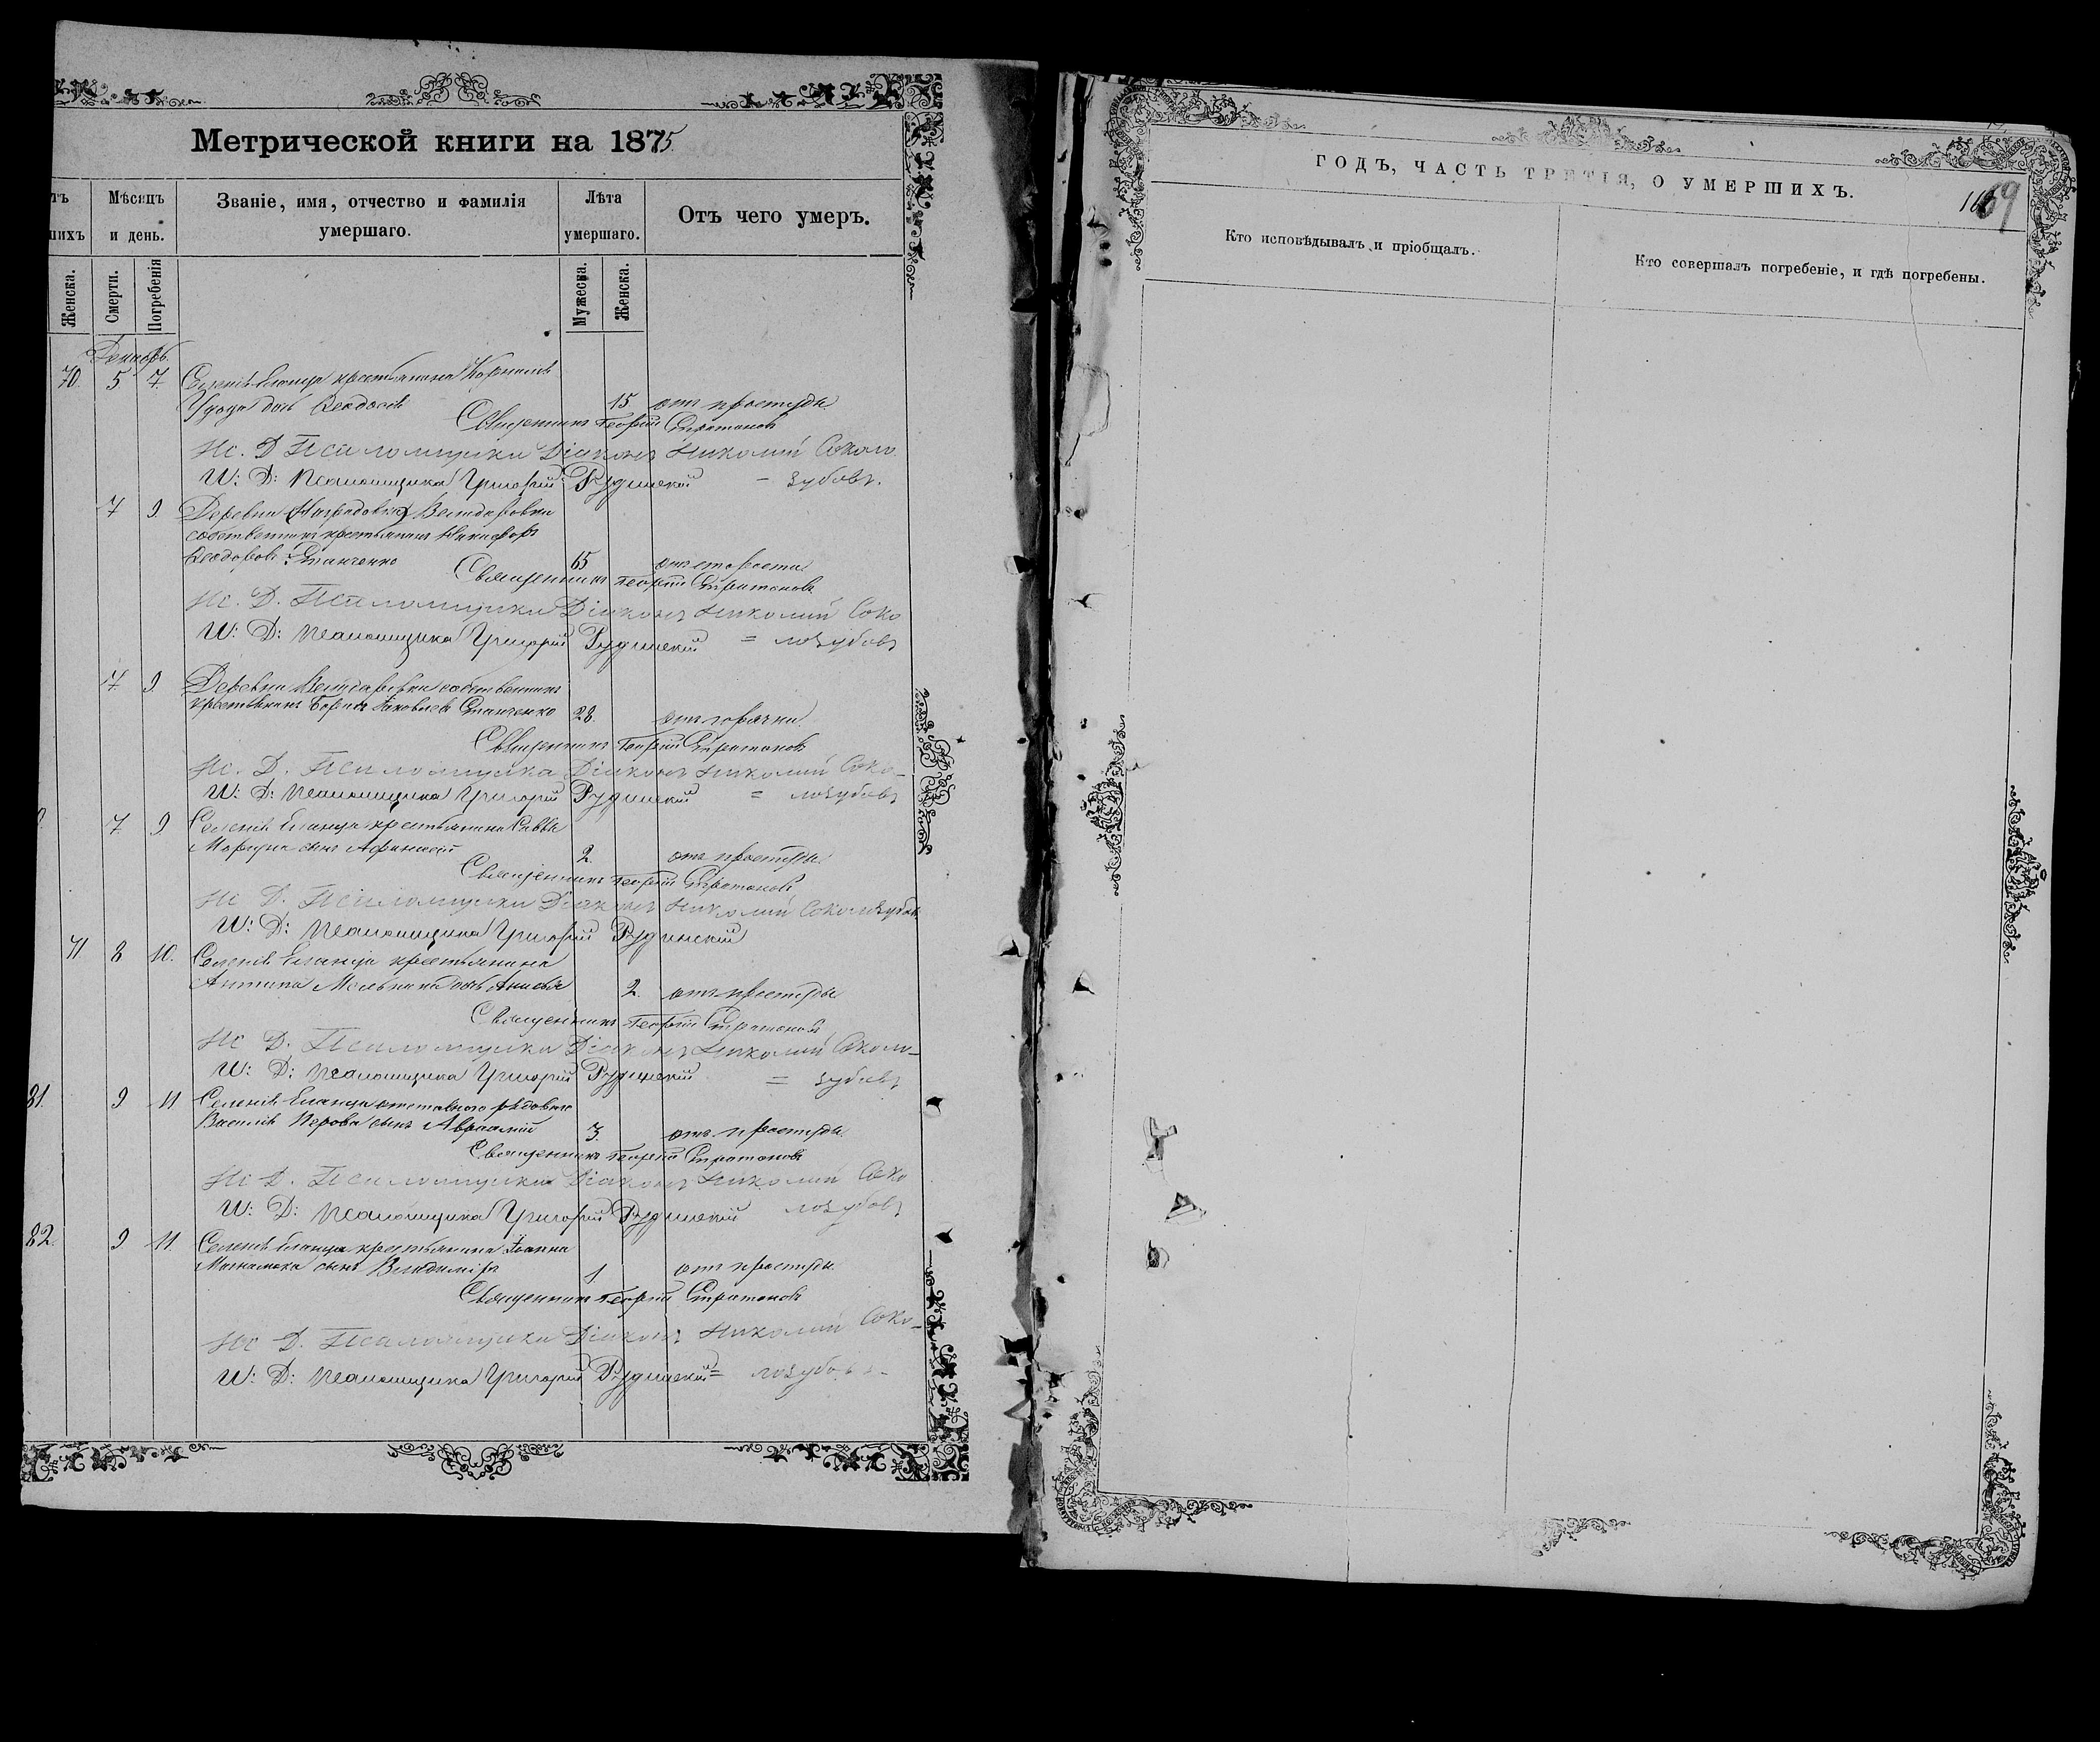 Метрической книги на 1875
тъ
шихъ
Мѣсяцъ
и день.
Званіе, имя, отчество и фамилія
умершаго.
Лѣта
умершаго.
Отъ чего умеръ.
Женска.
Смерти.
Погребенія
Мужеска.
Женска.
Декабрь.
70. 5 7. Селенія Еланца крестьянина Корнилія
дочь Феодосія 15 отъ простуды
Священникъ Георгій Стратоновъ
Ис. Д. Псаломщика Діаконъ Николай Соколо
И: Д: Псаломщика Григорій Рудинскій – зубовъ.
7 9. Деревни
собственникъ крестьянинъ Никифоръ
Феодоровъ Станченко 65 отъ старости
Священникъ Георгій Стратоновъ
Ис. Д. Псаломщика Діаконъ Николай Соко
И: Д: Псаломщика Григорій Рудинскій = лозубовъ
7. 9. Деревни собственникъ
крестьянинъ Борисъ Яковлевъ Станченко 28. отъ горячки.
Священникъ Георгій Стратоновъ
Ис. Д. Псаломщика Діаконъ Николай Соко-
И: Д: Псаломщика Григорій Рудинскій = лозубовъ
7 9 Селенія Еланца крестьянина Саввы
сынъ Афанасій 2. отъ простуды.
Священникъ Георгій Стратоновъ
Ис Д. Псаломщика Діаконъ Николай Соколозубовъ
И: Д: Псаломщика Григорій Рудинскій
71 8 10. Селенія Еланца крестьянина
Антипа Мельника дочь Анисья 2. отъ простуды
Священникъ Георгій Стратоновъ
Ис Д. Псаломщика Діаконъ Николай Соколо-
И: Д: Псаломщика Григорій Рудинскій = зубовъ
81. 9 11 Селенія Еланца отставного рядового
Василія Перова сынъ Авраамій 3. отъ простуды.
Священникъ Георгій Стратоновъ
Ис Д. Псаломщика Діаконъ Николай Соко
И: Д: Псаломщика Григорій Рудинскій лозубовъ
82. 9 11. Селенія Еланца крестьянина Іоанна
сынъ Владиміръ 1 отъ простуды.
Священникъ Георгій Стратоновъ
Ис Д. Псаломщика Діаконъ Николай Соко-
И: Д: Псаломщика Григорій Рудинскій = лозубовъ
ГОДЪ, ЧАСТЬ ТРЕТІЯ, О УМЕРШИХЪ.
Кто исповѣдывалъ и пріобщалъ.
Кто совершалъ погребеніе, и гдѣ погребены.